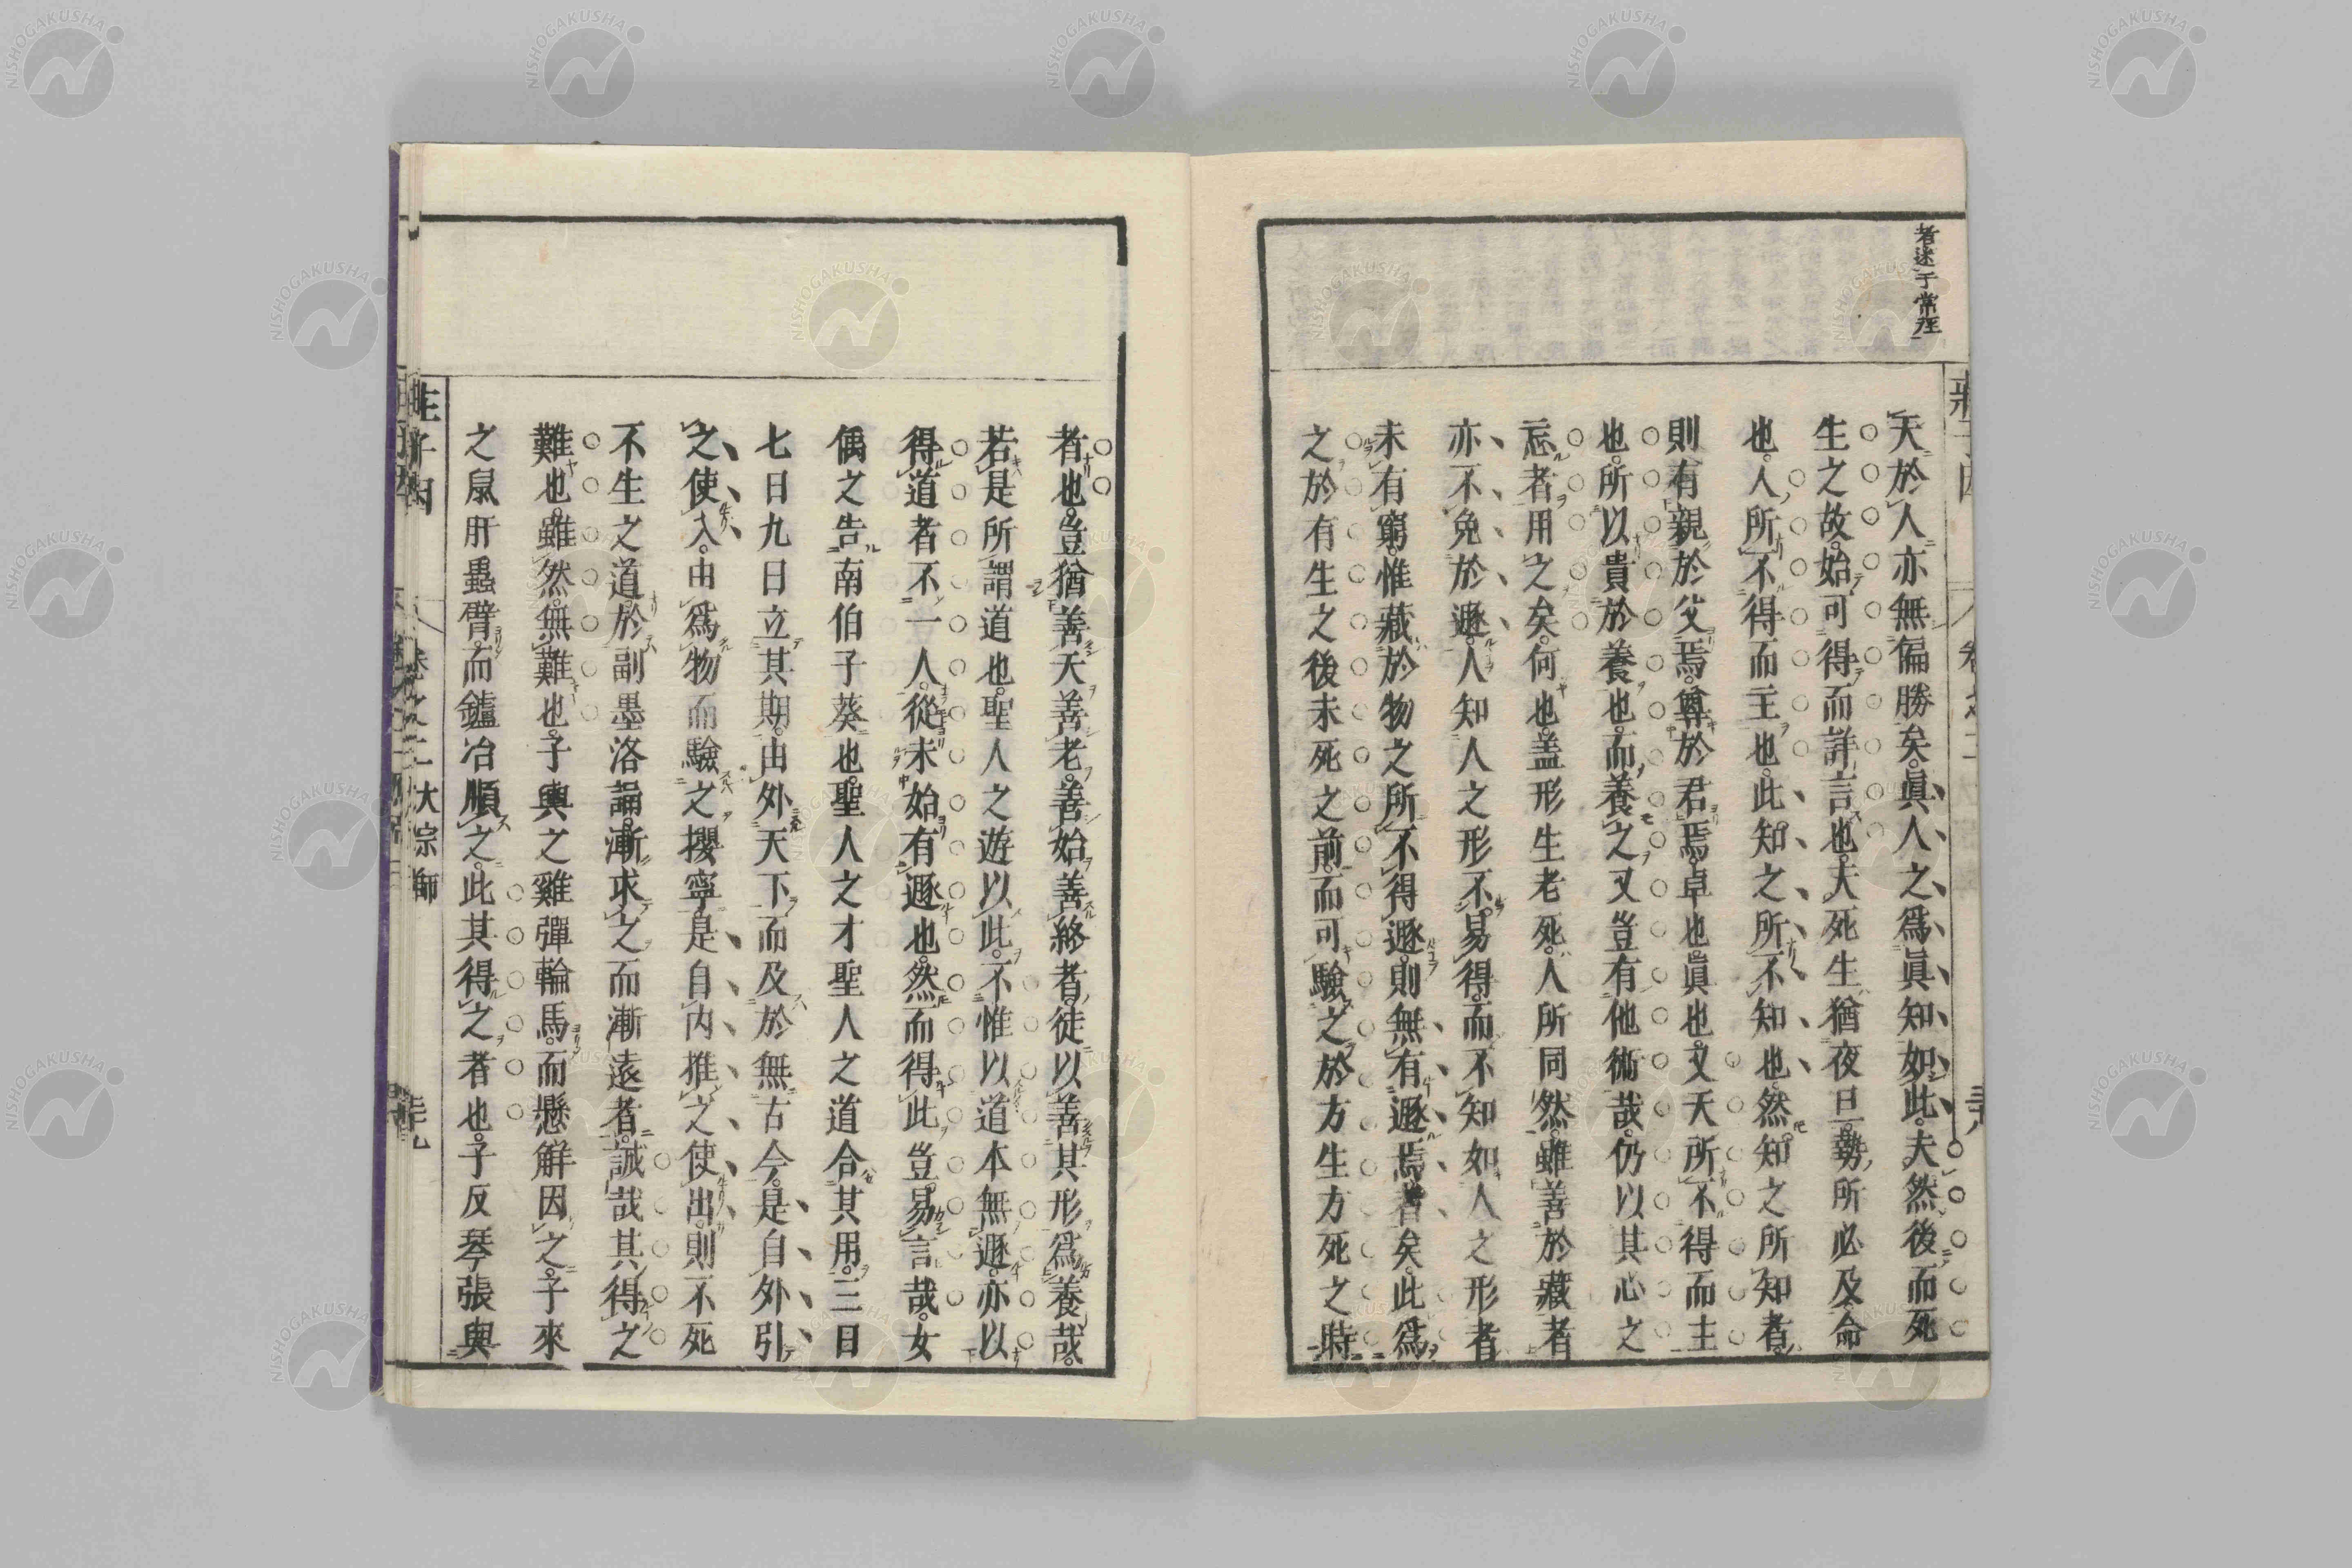 者迷于常徑
天於人亦無偏勝矣眞人之爲眞知如此夫然後而死
生之故始可得而詳言也夫死生猶夜旦勢所必及命
也人所不得而主也此知之所不知也然知之所知者
則有親於父焉尊於君焉卓也眞也又天所不得而主
也所以貴於養也而養之又豈有他術哉仍以其心之
忘者用之矣何也蓋形生老死人所同然雖善於藏者
亦不免於遯人知人之形不易得而不知如人之形者
未有窮惟藏於物之所不得遯則無有遯焉者矣此爲
之於有生之後未死之前而可驗之於方生方死之時
者也豈猶善夭善老善始善終者徒以善其形爲養哉
若是所謂道也聖人之遊以此不惟以道本無遯亦以
得道者不一人從未始有遯也然而得此豈易言哉女
偊之告南伯子葵也聖人之才聖人之道合其用三日
七日九日立其期由外天下而及於無古今是自外引
之使入由爲物而驗之攖寧是自内推之使出則不死
不生之道於副墨洛誦漸求之而漸遠者誠哉其得之
難也雖然無難也子輿之雞彈輪馬而懸解因之子來
之鼠肝蟲臂而鑪冶順之此其得之者也子反琴張與
莊子因
卷之二 大宗師
三十九